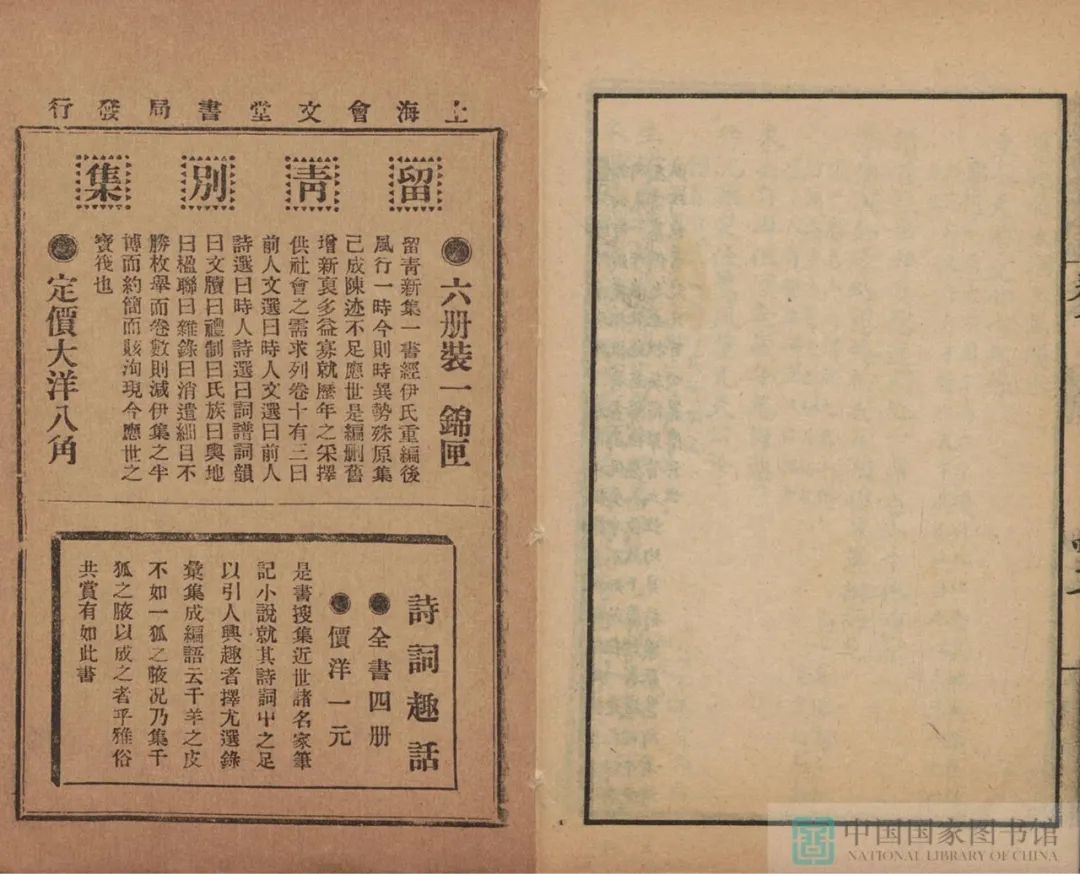 上海會文堂書局發行
留青別集
六册裝一錦匣
留青新集一書經伊氏重編後
風行一時今則時異勢殊原集
已成陳迹不足應世是編删舊
增新裒多益寡就歷年之采擇
供社會之需求列卷十有三曰
前人文選曰時人文選曰前人
詩選曰時人詩選曰詞譜詞韻
曰文牘曰禮制曰氏族曰輿地
曰楹聯曰雜錄曰消遣細目不
勝枚舉而卷數則減伊集之半
博而約簡而賅洵現今應世之
寶筏也
定價大洋八角
詩詞趣話
全書四册
價洋一元
是書搜集近世諸名家筆
記小說就其詩詞中之足
以引人興趣者擇尤選錄
彙集成編語云千羊之皮
不如一狐之腋况乃集千
狐之腋以成之者乎雅俗
共賞有如此書
中国国家图书馆
NATIONAL LIBRARY OF CHINA